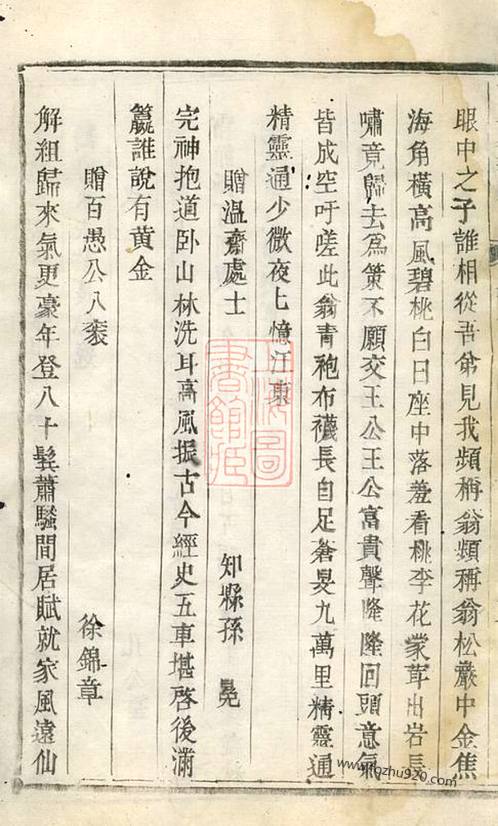 眼中之子誰相從吾弟見我頻稱翁頻稱翁松巖中金焦
海角橫高風碧桃白日座中落羞看桃李花蒙茸出岩長
嘯竟歸去為策不願交王公王公富貴聲隆隆回頭意氣
皆成空吁嗟此翁青袍布襪長自足蒼旻九萬里精靈通
精靈通少微夜上憶江東
贈溫齋處士　知縣孫　晃
完神抱道卧山林洗耳高風振古今經史五車堪啓後滿
籯誰說有黄金
贈百愚公八袠　徐錦章
解組歸來氣更豪年登八十鬂蕭騷閒居賦就家風遠仙
上海圖書館藏
www.kongfz920.com